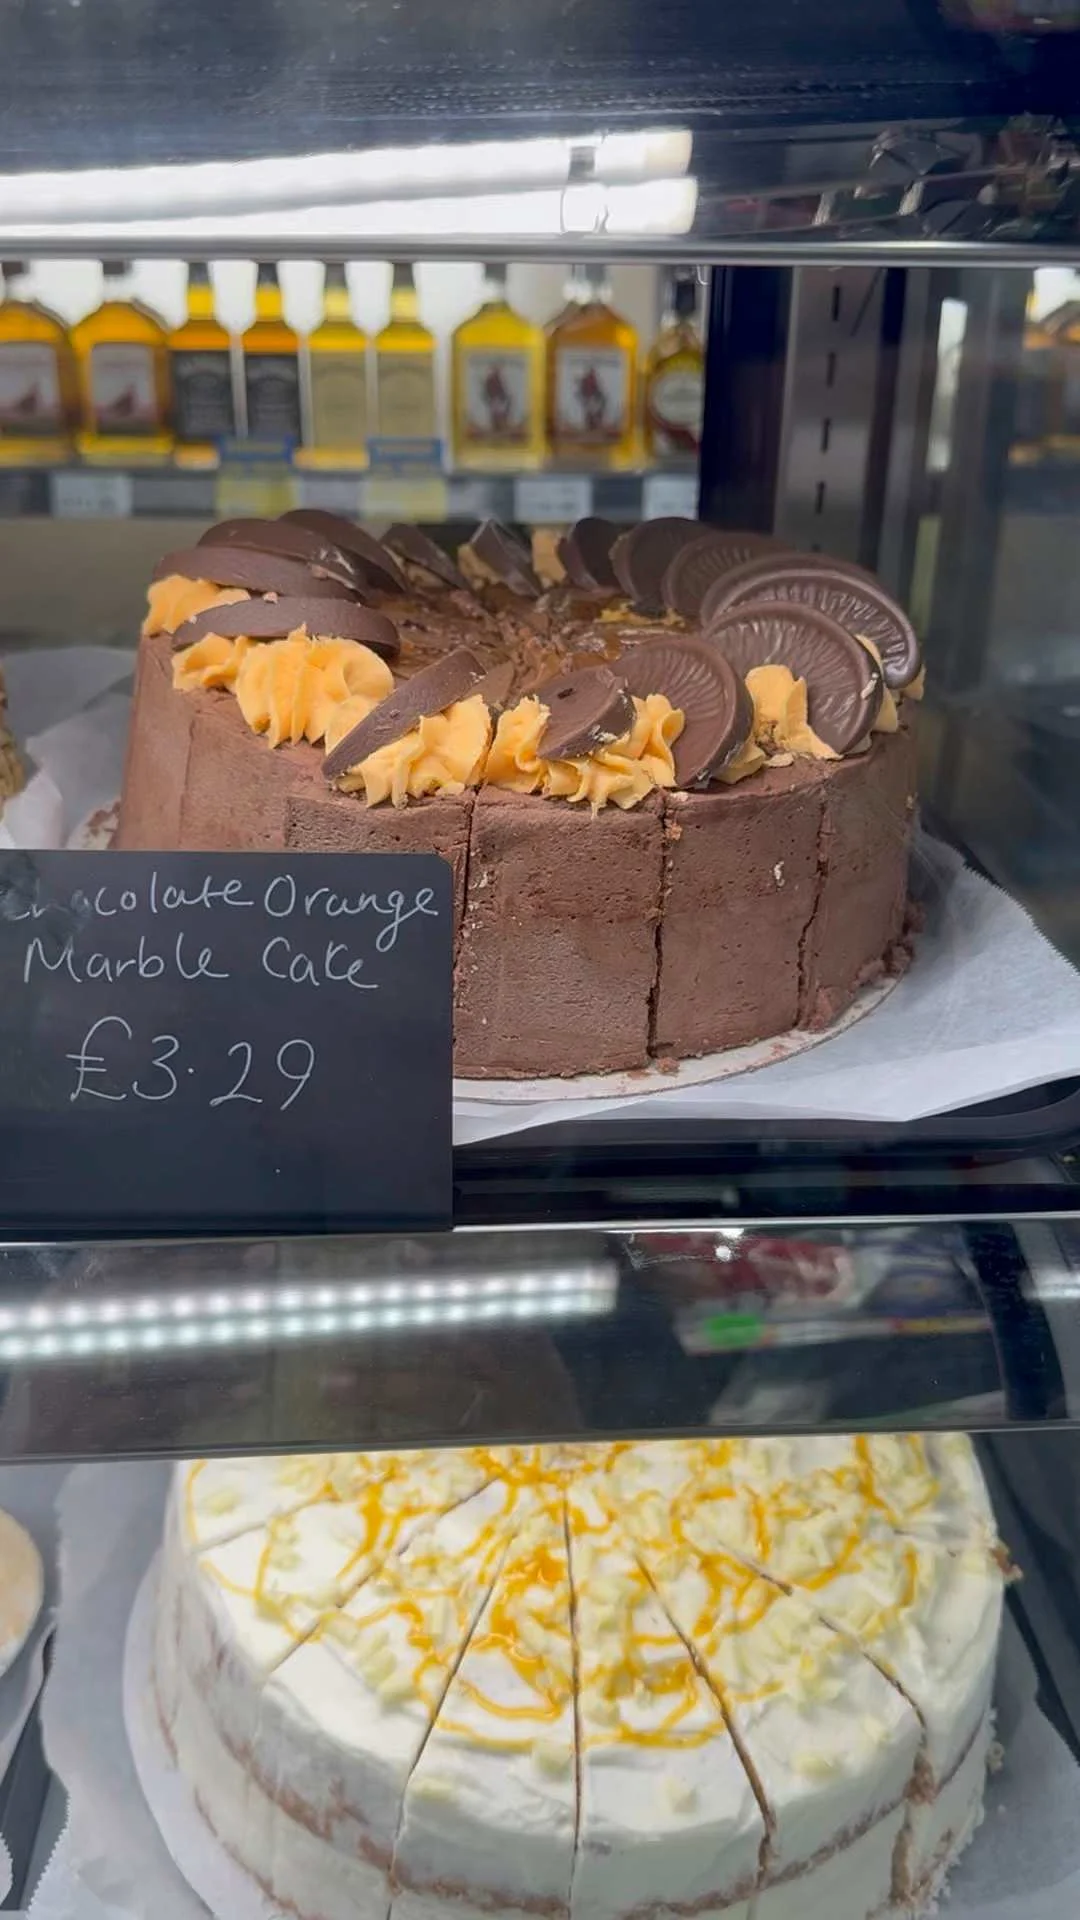 Chocolate Orange
Marble Cake
£3.29